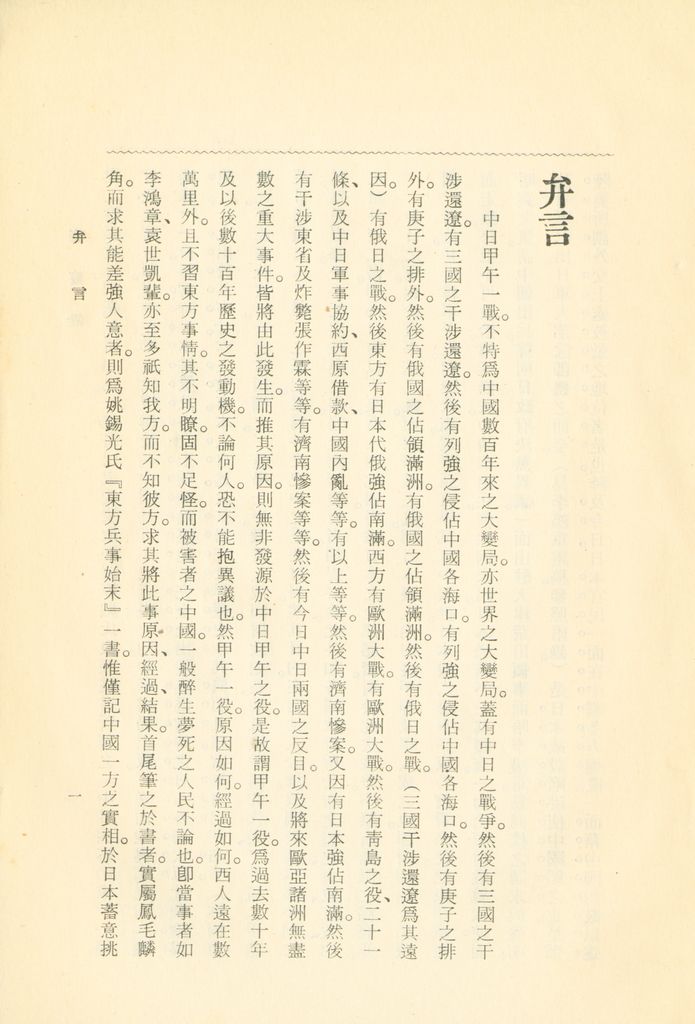 弁言
中日甲午一戰。不特爲中國數百年來之大變局。亦世界之大變局。蓋有中日之戰爭。然後有三國之干
涉還遼。有三國之干涉還遼。然後有列強之侵佔中國各海口。有列強之侵佔中國各海口。然後有庚子之排
外。有庚子之排外。然後有俄國之佔領滿洲。有俄國之佔領滿洲。然後有俄日之戰。（三國干涉還遼爲其遠
因。）有俄日之戰。然後東方有日本代俄強佔南滿。西方有歐洲大戰。有歐洲大戰。然後有靑島之役、二十一
條、以及中日軍事協約、西原借款、中國內亂等等。有以上等等。然後有濟南慘案。又因有日本強佔南滿。然後
有干涉東省及炸斃張作霖等等。有濟南慘案等等。然後有今日中日兩國之反目。以及將來歐亞諸洲無盡
數之重大事件。皆將由此發生。而推其原因。則無非發源於中日甲午之役。是故謂甲午一役。爲過去數十年
及以後數十百年歷史之發動機。不論何人。恐不能抱異議也。然甲午一役。原因如何。經過如何。西人遠在數
萬里外。且不習東方事情。其不明瞭。固不足怪。而被害者之中國。一般醉生夢死之人民不論也。卽當事者如
李鴻章、袁世凱輩。亦至多祇知我方。而不知彼方。求其將此事原因、經過、結果。首尾筆之於書者。實屬鳳毛麟
角。而求其能差強人意者。則爲姚錫光氏『東方兵事始末』一書。惟僅記中國一方之實相。於日本蓄意挑
弁言
一